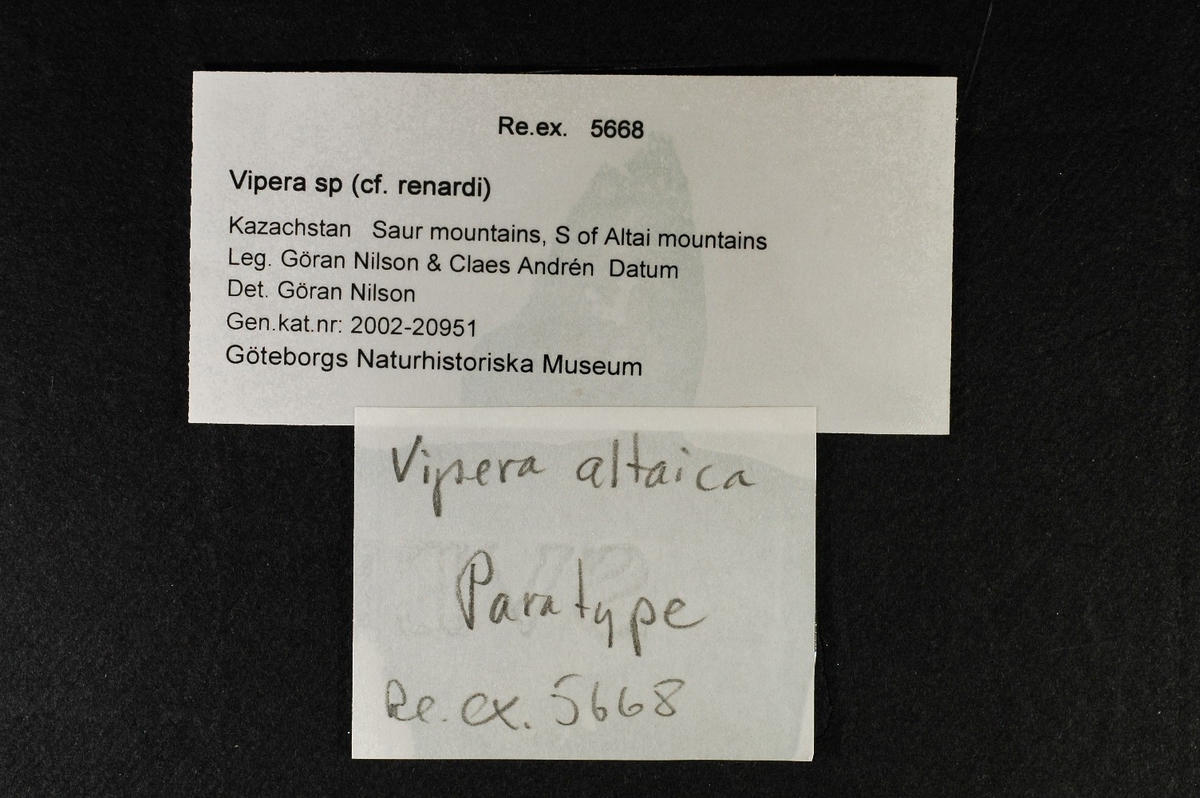 Re.ex. 5668
Vipera sp (cf. renardi)
Kazachstan Saur mountains, S of Altai mountains
Leg. Göran Nilson & Claes Andrén Datum
Det. Göran Nilson
Gen.kat.nr: 2002-20951
Göteborgs Naturhistoriska Museum
Vipera altaica
Paratype
Re.ex. 5668